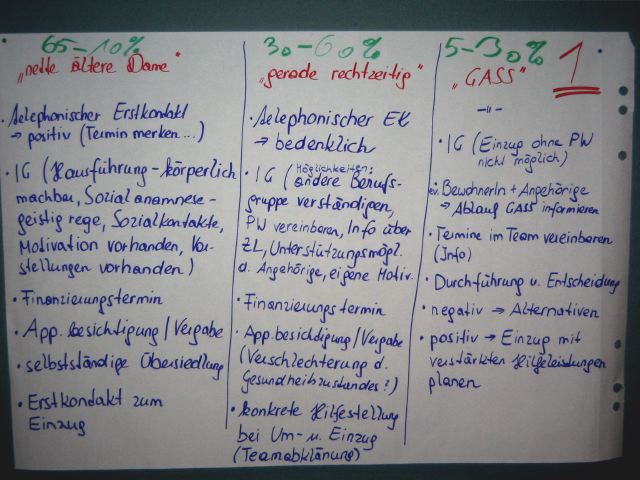 65-10%
"nette ältere Dame"
• telephonischer Erstkontakt
→ positiv (Termin merken...)
• IG (Hausführung - körperlich
machbar, Sozialanamnese -
geistig rege, Sozialkontakte,
Motivation vorhanden, Vor-
stellungen vorhanden)
• Finanzierungstermin
• App.besichtigung/Vergabe
• selbstständige Übersiedlung
• Erstkontakt zum
Einzug
30-60%
"gerade rechtzeitig"
• telephonischer EK
→ bedenklich
• IG (Möglichkeiten:
andere Berufs-
gruppe verständigen,
PW vereinbaren, Info über
ZL, Unterstützungsmögl.
d. Angehörige, eigene Motiv.
• Finanzierungstermin
• App.besichtigung/Vergabe
(Verschlechterung d.
Gesundheitszustandes?)
• konkrete Hilfestellung
bei Um- u. Einzug
(Teamabklärung)
5-30%
"GASS"
1
-"-
• IG (Einzug ohne PW
nicht möglich)
ev. BewohnerIn + Angehörige
→ Ablauf GASS informieren
• Termine im Team vereinbaren
(Info)
• Durchführung u. Entscheidung
• negativ → Alternativen
• positiv → Einzug mit
verstärkten Hilfeleistungen
planen